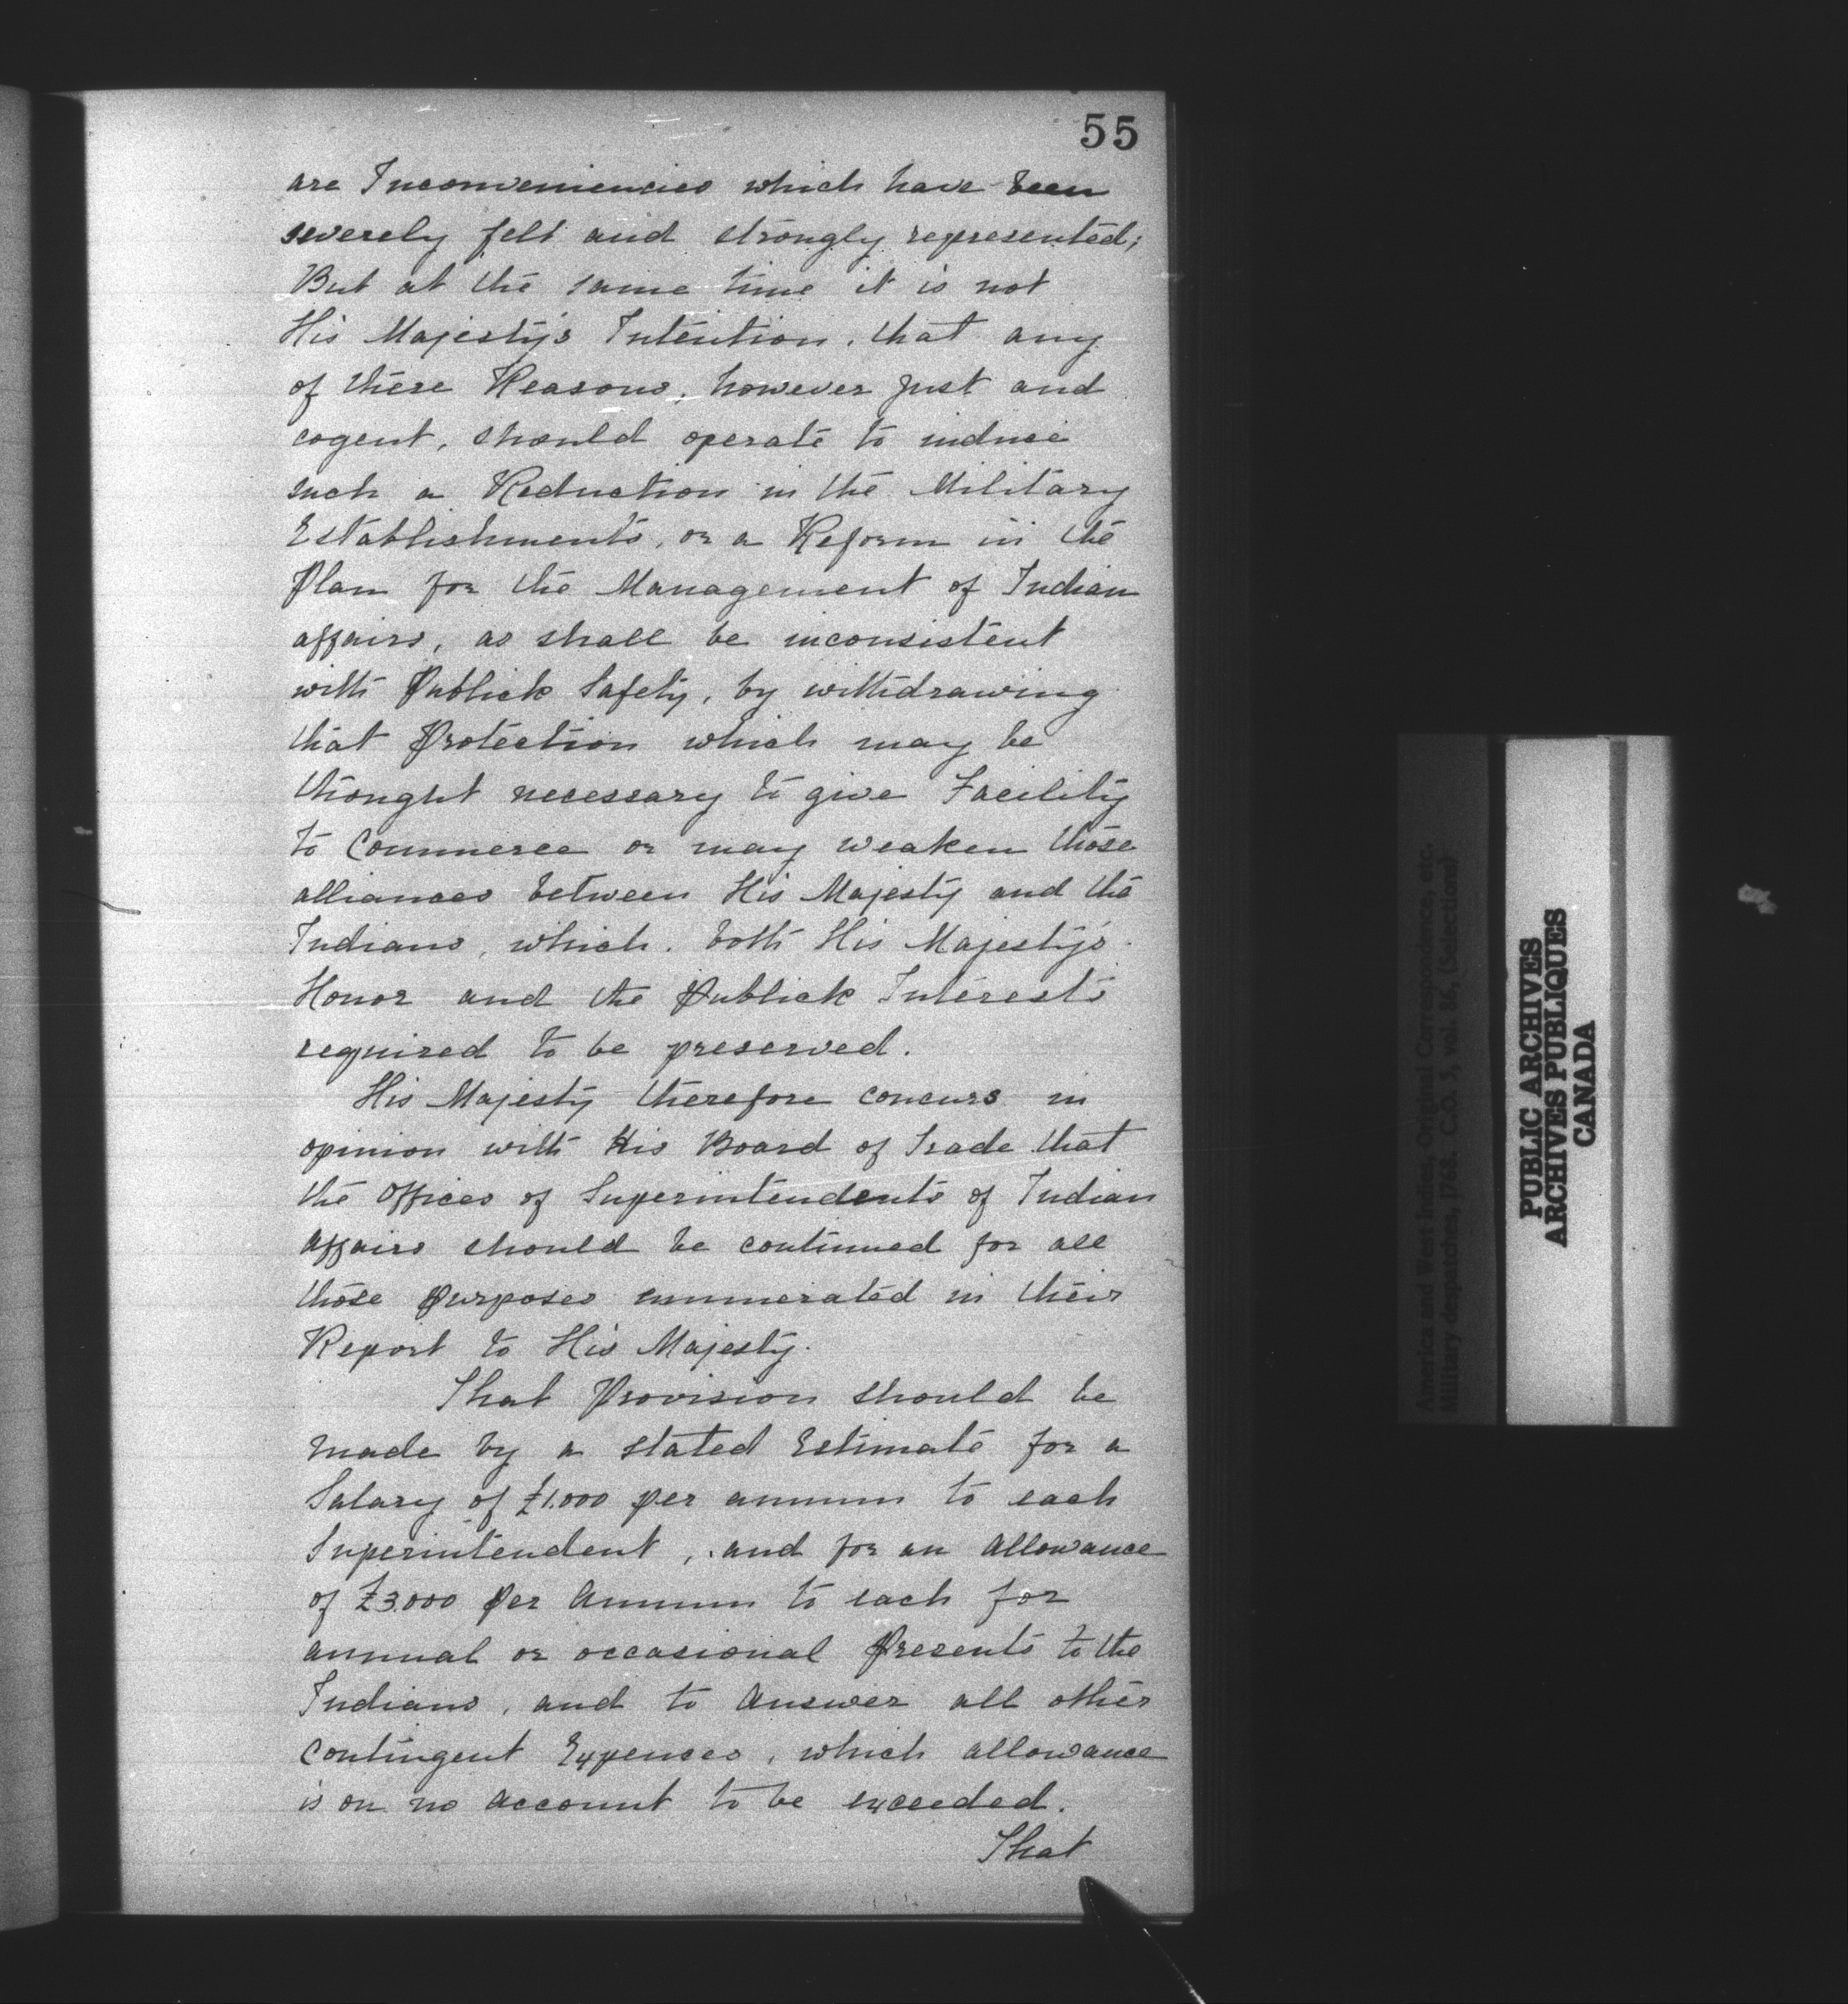 55
are Inconveniencies which have been
severely felt and strongly represented;
But at the same time it is not
His Majesty's Intention, that any
of these Reasons, however just and
cogent, should operate to induce
such a Reduction in the Military
Establishments, or a Reform in the
Plan for the Management of Indian
affairs, as shall be inconsistent
with Publick Safety, by withdrawing
that Protection which may be
thought necessary to give Facility
to Commerce or may weaken those
alliances between His Majesty and the
Indians, which. both His Majesty's
Honor and the Publick Interests
required to be preserved.
His Majesty therefore concurs in
opinion with His Board of Trade that
the Offices of Superintendents of Indian
Affairs should be continued for all
those purposes enumerated in their
Report to His Majesty.
That Provision should be
made by a stated Estimate for a
Salary of £1.000 per annum to each
Superintendent, and for an Allowance
of £3.000 Per Annum to each for
annual or occasional Presents to the
Indians, and to Answer all other
Contingent Expenses, which allowance
is on no account to be exceeded.
That
America and West Indies, Original Correspondence, etc.
Military despatches, 1768. C.O. 5, vol. 86, (Selections)
PUBLIC ARCHIVES
ARCHIVES PUBLIQUES
CANADA